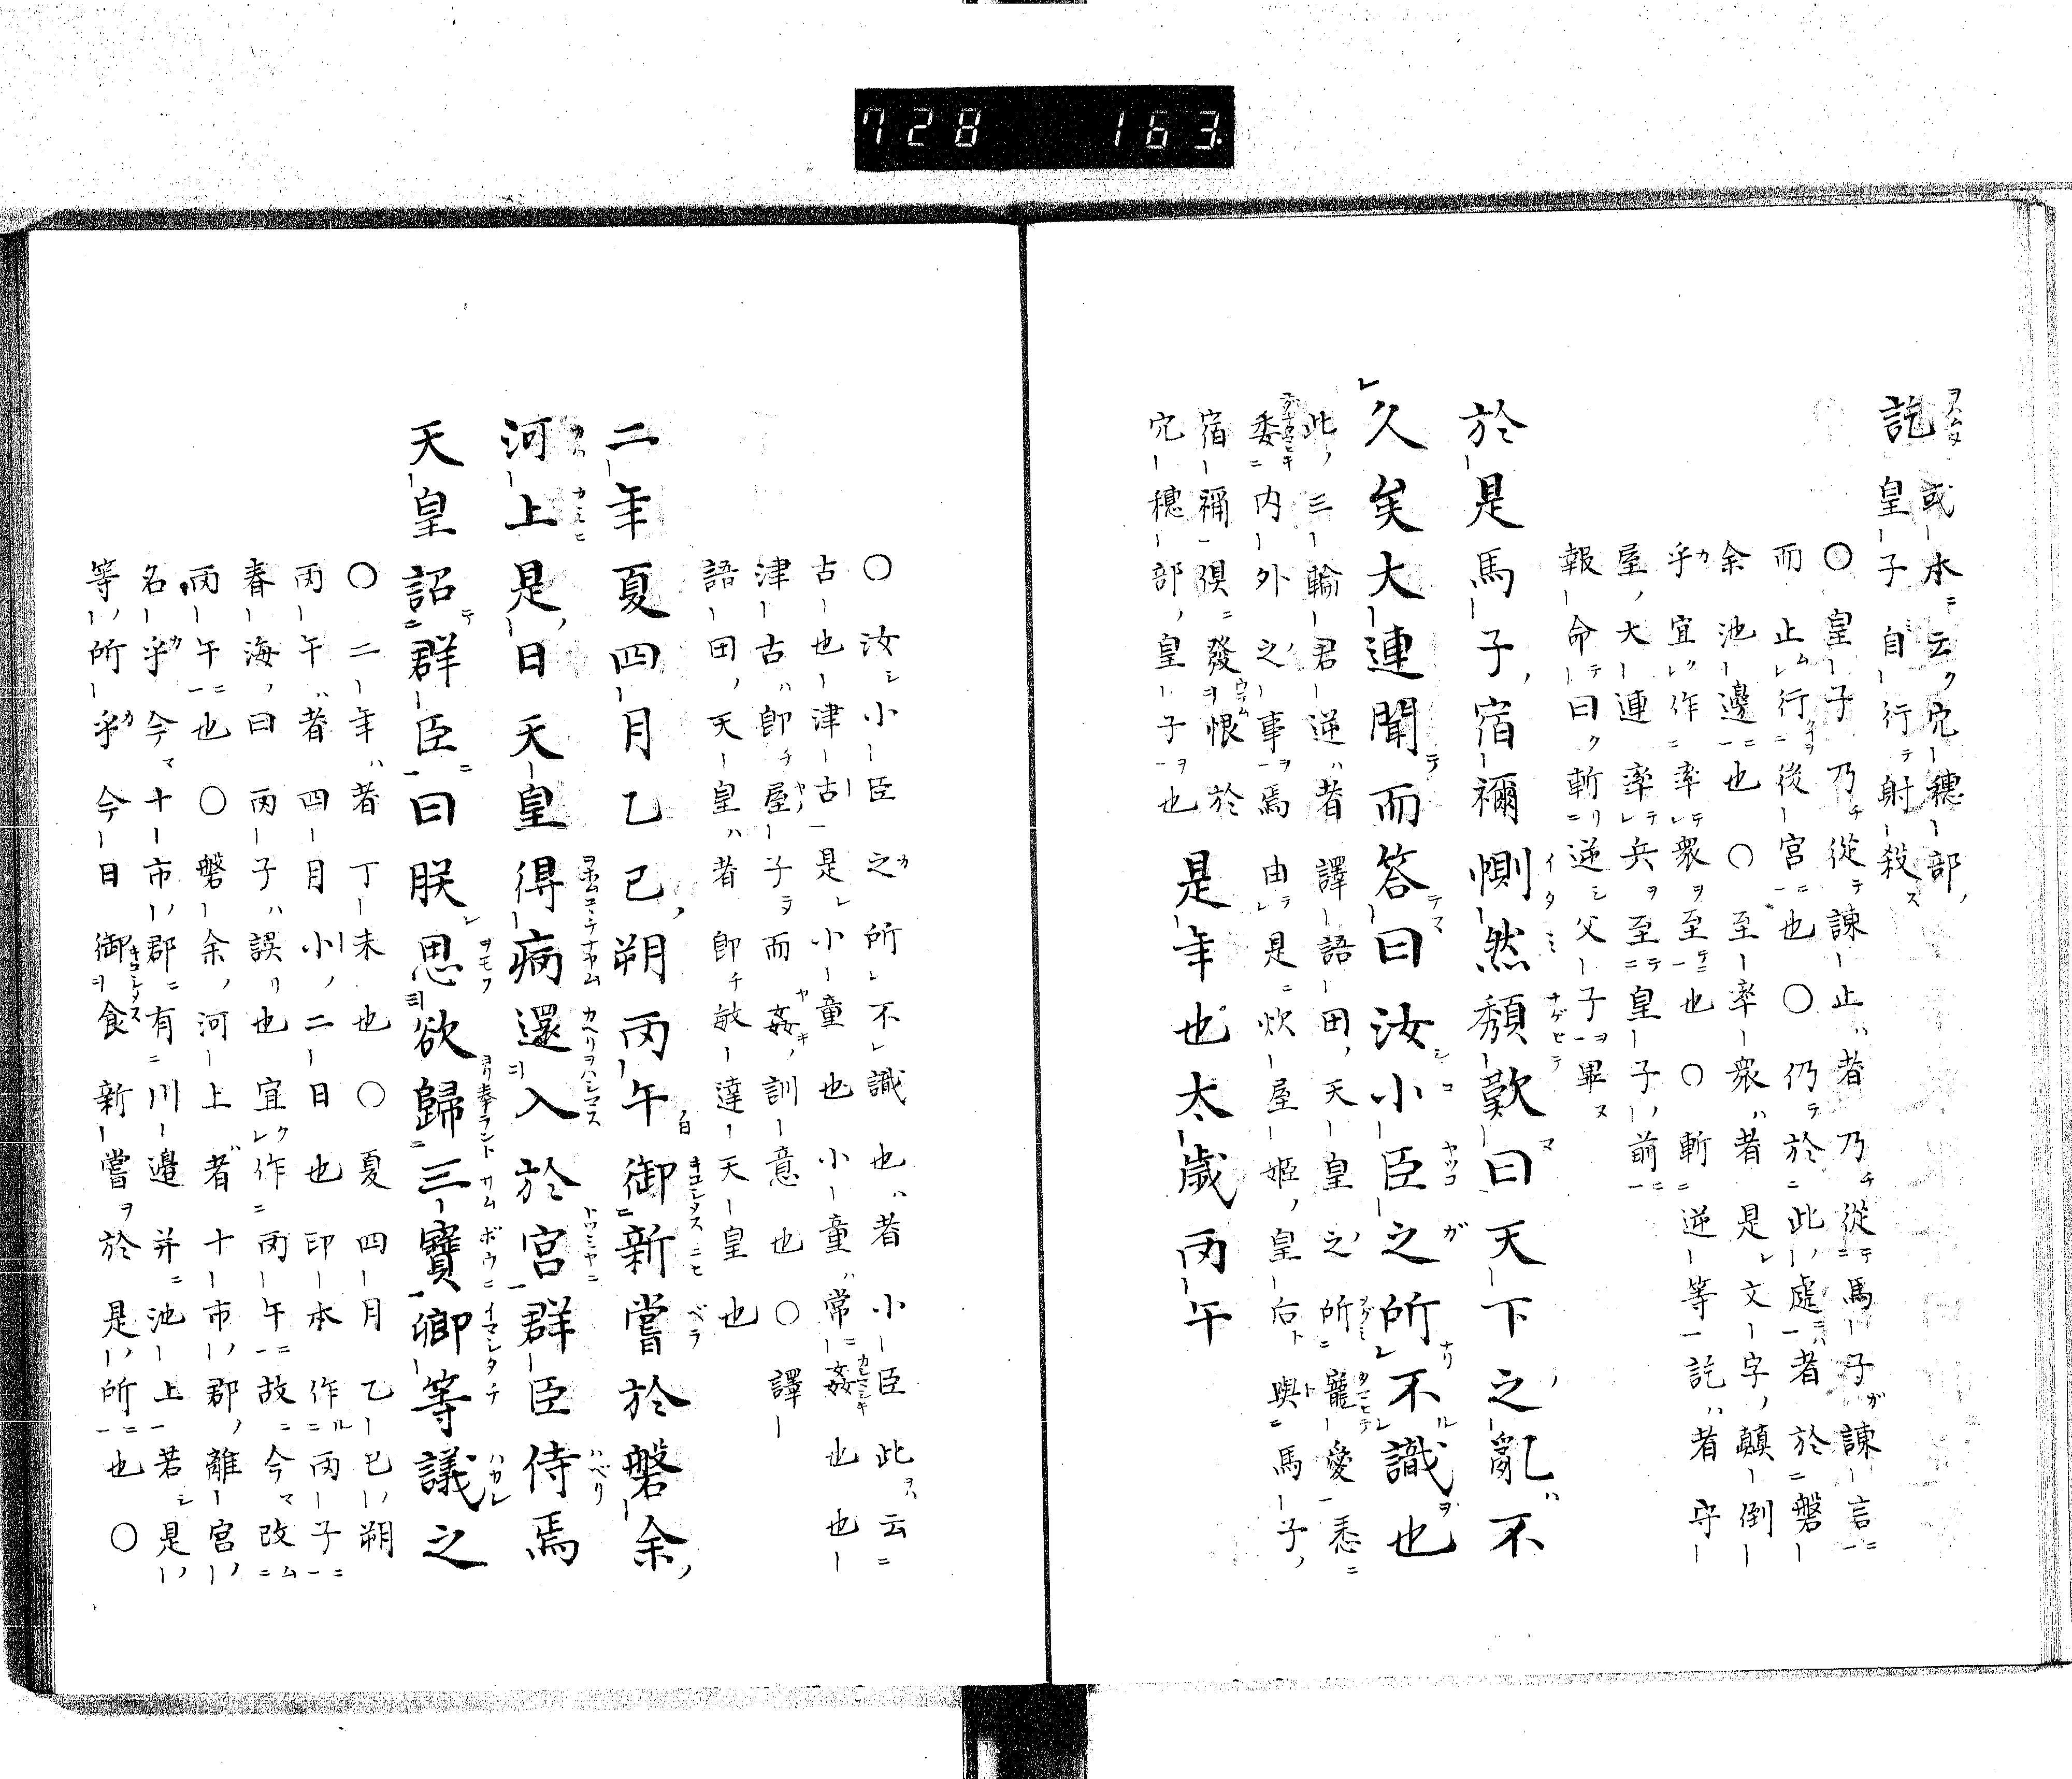 728 163
或本云穴穗部
訖皇子自行射殺
○皇子乃從諫止者乃從馬子諫言
而止行後宮也○仍於此處者於磐
余池邊也○至率衆者是文字顚倒
乎宜作率衆至也○斬逆等訖者守
屋大連率兵至皇子前
報命曰斬逆父子畢
於是馬子宿禰惻然頽歎曰天下之亂不
久矣大連聞而答曰汝小臣之所不識也
此三輪君逆者譯語田天皇之所寵愛悉
委內外之事焉由是炊屋姬皇后與馬子
宿禰俱發恨於
穴穗部皇子也
是年也太歲丙午
○汝小臣之所不識也者小臣此云
古也津古是小童也小童常姦也也
津古卽屋子而姦訓意也○譯
語田天皇者卽敏達天皇也
二年夏四月乙巳朔丙午御新嘗於磐余
河上是日天皇得病還入於宮群臣侍焉
天皇詔群臣曰朕思欲歸三寶卿等議之
○二年者丁未也○夏四月乙巳朔
丙午者四月小二日也印本作丙子
春海曰丙子誤也宜作丙午故今改
丙午也○磐余河上者十市郡離宮
名乎今十市郡有川邊并池上若是
等所乎今日御食新嘗於是所也○